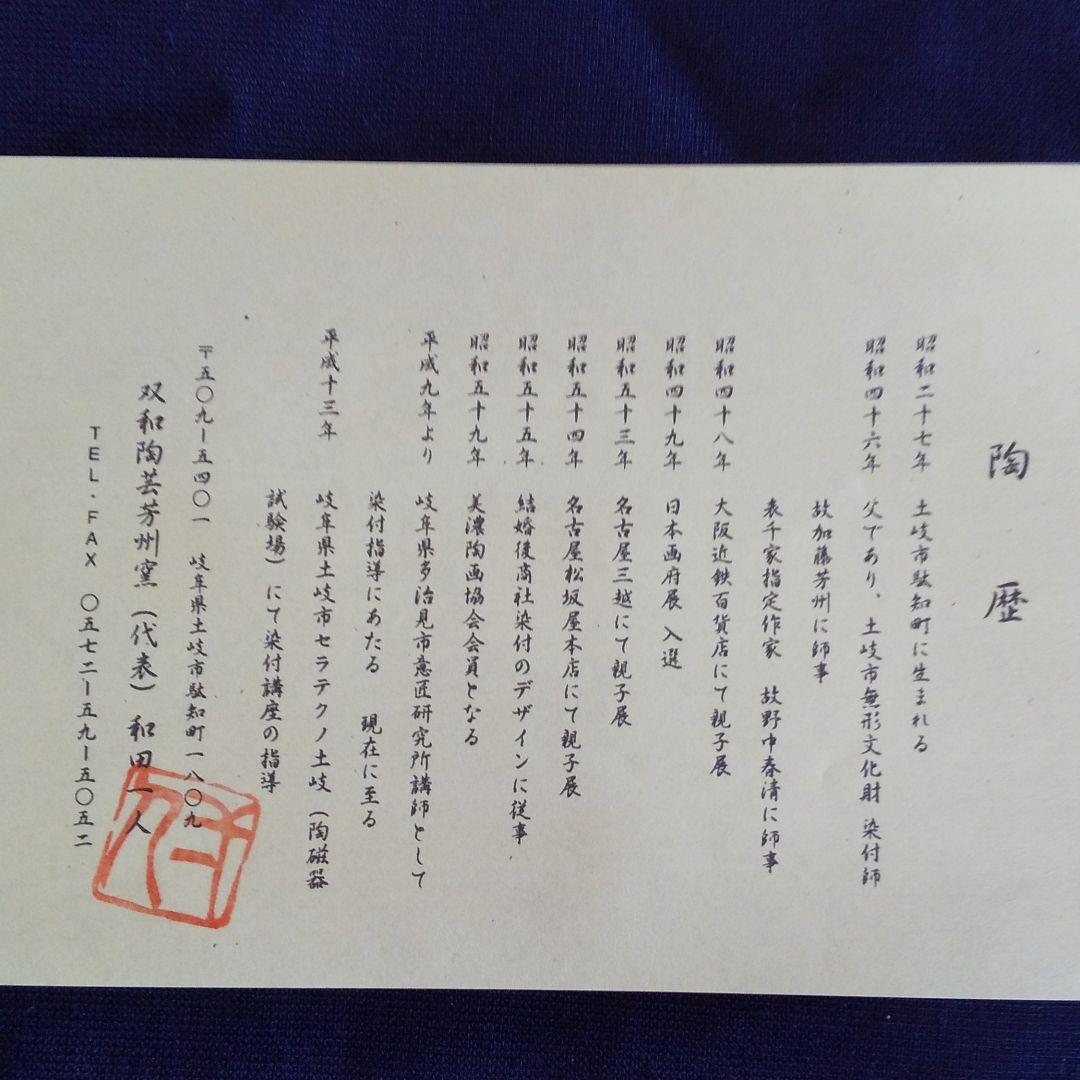 陶歴
昭和二十七年 土岐市駄知町に生まれる
昭和四十六年 父であり、土岐市無形文化財 染付師
故加藤芳州に師事
表千家指定作家 故野中春清に師事
昭和四十八年 大阪近鉄百貨店にて親子展
昭和四十九年 日本画府展 入選
昭和五十三年 名古屋三越にて親子展
昭和五十四年 名古屋松坂屋本店にて親子展
昭和五十五年 結婚後商社染付のデザインに従事
昭和五十九年 美濃陶画協会会員となる
平成九年より 岐阜県多治見市意匠研究所講師として
染付指導にあたる 現在に至る
平成十三年 岐阜県土岐市セラテクノ土岐（陶磁器
試験場）にて染付講座の指導
〒五〇九ー五四〇一 岐阜県土岐市駄知町一八〇九
双和陶芸芳州窯（代表）和田一人
TEL・FAX 〇五七二ー五九ー五〇五二